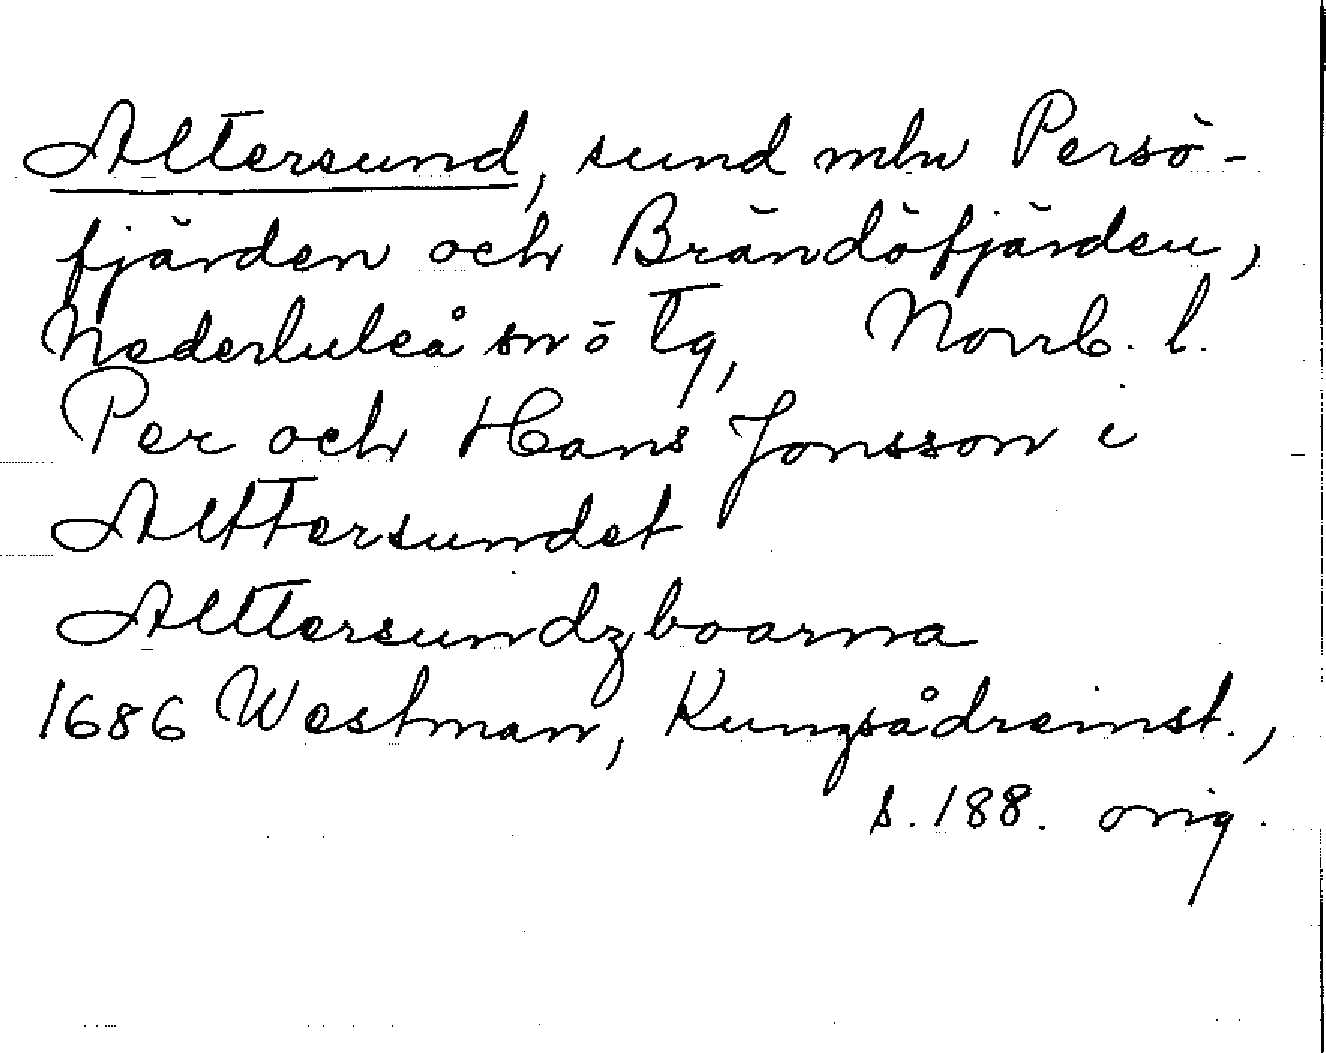 Altersund, sund mln Persö-
fjärden och Brändöfjärden,
Nederluleå sn ö tg, Norrb. l.
Per och Hans Jonsson i
Alttersundet
Alttersundzboarna
1686 Westman, Kungsådreinst.,
s. 188. orig.